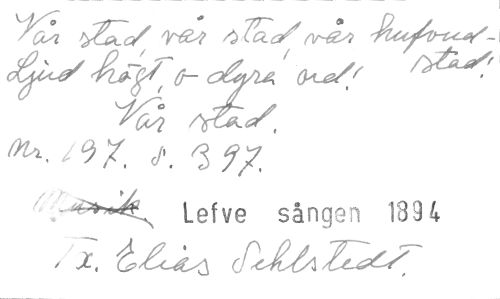 Vår stad, vår stad, vår hufvud-
stad!
Ljud högt, o dyra ord!
Vår stad.
Nr. 197. s. 397.
Musik. Lefve sången 1894
Tx. Elias Sehlstedt.